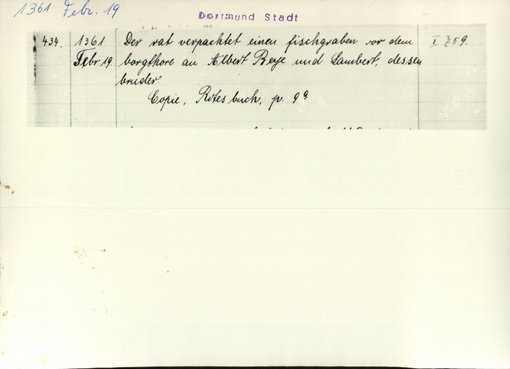 1361 Febr. 19
Dortmund Stadt
434. 1361 Der rat verpachtet einen fischgraben vor dem I 759.
Febr. 19 borgthore an Albert Beye und Lambert, dessen
bruder
Copie, Rotes buch, p. 9ª